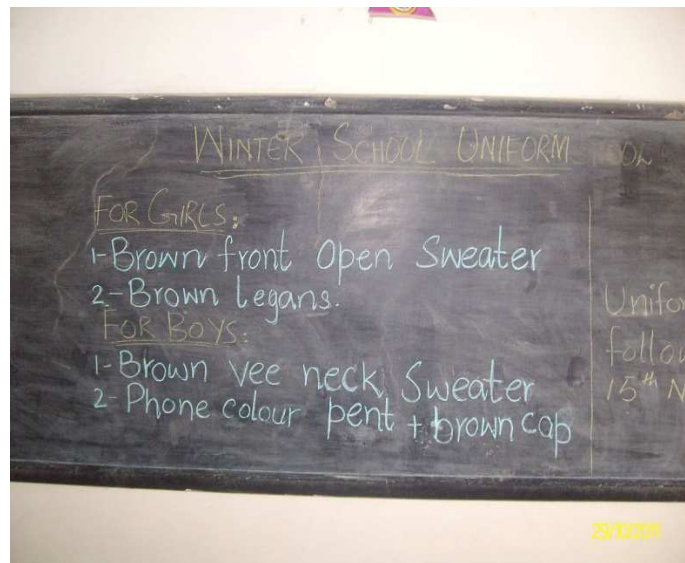 WINTER SCHOOL UNIFORM
FOR GIRLS:
1-Brown front Open Sweater
2-Brown legans.
FOR BOYS:
1-Brown vee neck Sweater
2-Phone colour pent + brown cap
Unifor
follow
15th N
29/10/2011